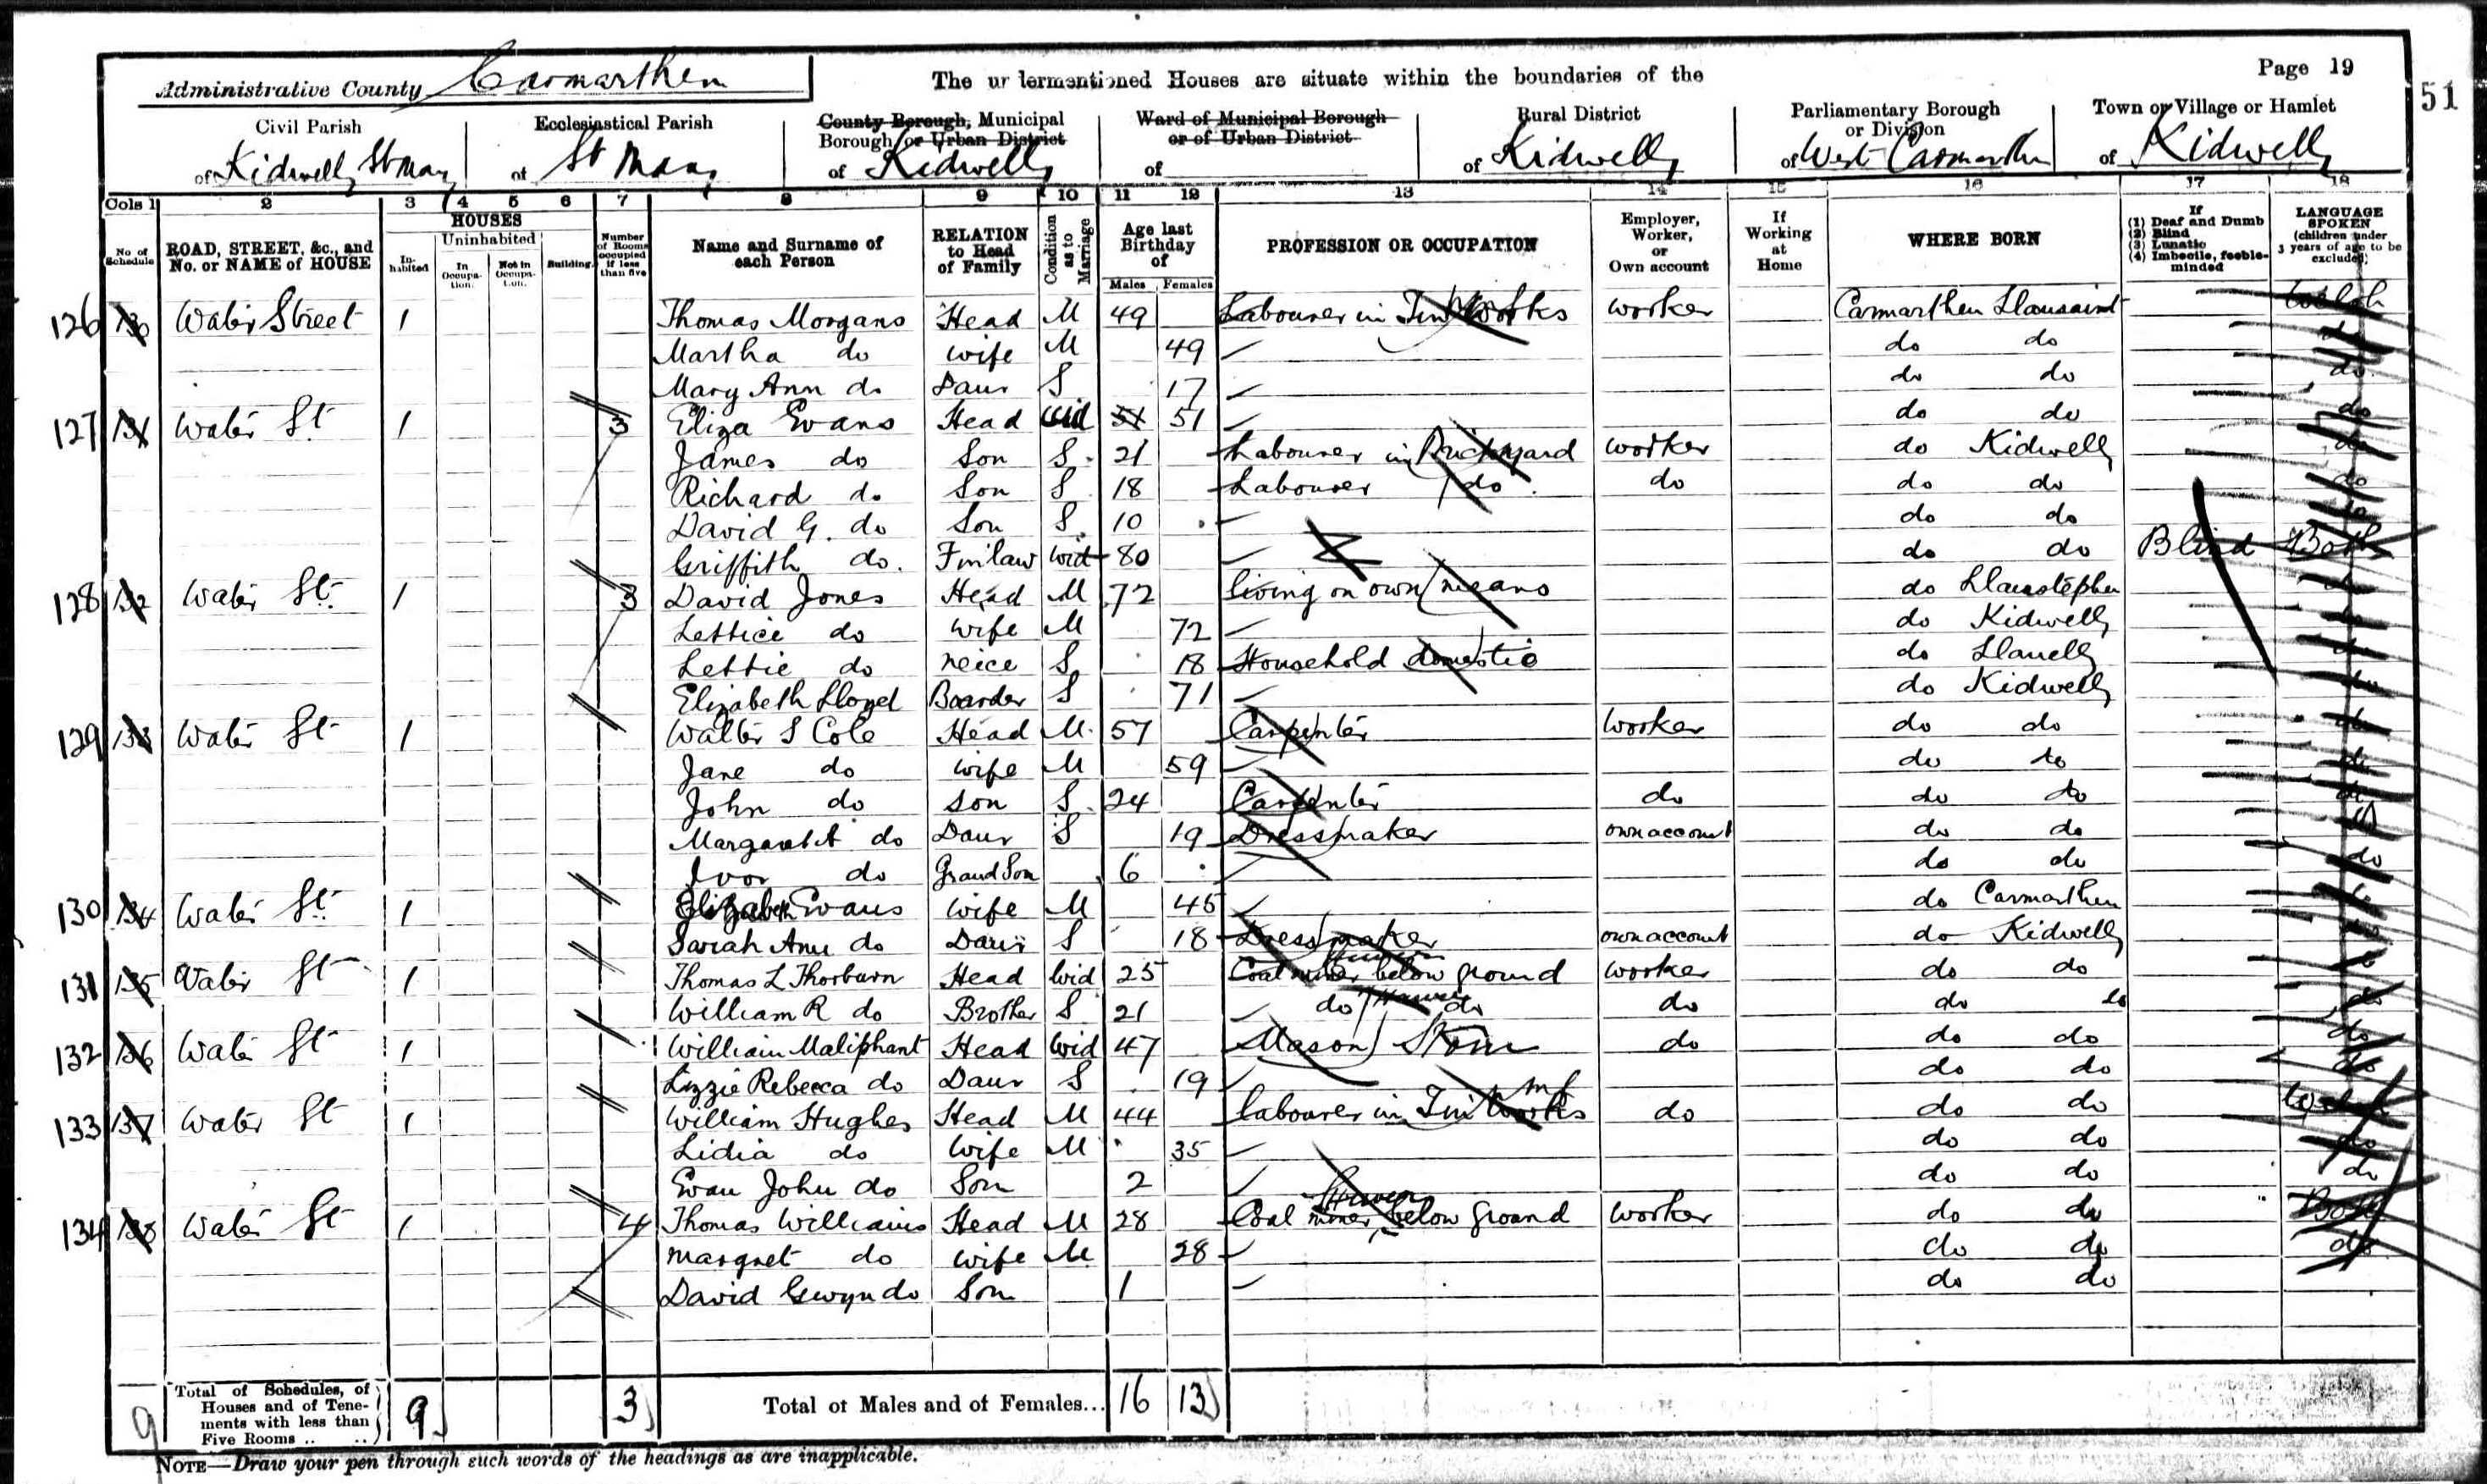 Page 19
51
Administrative County Carmarthen
The undermentioned Houses are situate within the boundaries of the
Civil Parish of Kidwelly St Mary
Ecclesiastical Parish of St Mary
County Borough, Municipal Borough or Urban District of Kidwelly
Ward of Municipal Borough or of Urban District of
Rural District of Kidwelly
Parliamentary Borough or Division of West Carmarthen
Town or Village or Hamlet of Kidwelly
Cols 1 2 3 4 5 6 7 8 9 10 11 12 13 14 15 16 17 18
No. of Schedule
ROAD, STREET, &c., and No. or NAME of HOUSE
HOUSES
Inhabited
Uninhabited
In Occupation.
Not in Occupation.
Building
Number of Rooms occupied if less than five
Name and Surname of each Person
RELATION to Head of Family
Condition as to Marriage
Age last Birthday of
Males Females
PROFESSION OR OCCUPATION
Employer, Worker, or Own account
If Working at Home
WHERE BORN
If (1) Deaf and Dumb (2) Blind (3) Lunatic (4) Imbecile, feeble-minded
LANGUAGE SPOKEN (children under 3 years of age to be excluded)
126 130 Water Street 1 Thomas Morgans Head M 49 Labourer in Tin Works worker Carmarthen Llansaint Welsh
Martha do wife M 49 do do do
Mary Ann do Daur S 17 do do do
127 131 Water St 1 3 Eliza Evans Head Wid 51 51 do do do
James do Son S 21 Labourer in Brickyard worker do Kidwelly do
Richard do Son S 18 Labourer do do do do do
David G. do Son S 10 do do do
Griffith do. F in law Wid 80 do do Blind Both
128 132 Water St. 1 3 David Jones Head M 72 living on own means do Llanstephen do
Lettice do wife M 72 do Kidwelly do
Lettie do neice S 18 Household domestic do Llanelly do
Elizabeth Lloyd Boarder S 71 do Kidwelly do
129 133 Water St 1 Walter S Cole Head M. 57 Carpenter Worker do do do
Jane do wife M 59 do do do
John do Son S 24 Carpenter do do do do
Margaret A do Daur S 19 Dressmaker own account do do do
Ivor do Grand Son 6 do do do
130 134 Water St. 1 Elizabeth Evans wife M 45 do Carmarthen do
Sarah Ann do Daur S 18 Dressmaker own account do Kidwelly do
131 135 Water St 1 Thomas L Thorburn Head Wid 25 Coal miner Hewer below ground worker do do do
William R do Brother S 21 do Hewer do do do do do
132 136 Water St 1 William Maliphant Head Wid 47 Mason Stone do do do do
Lizzie Rebecca do Daur S 19 do do do
133 137 Water St 1 William Hughes Head M 44 labourer in Tin Works do do do Welsh
Lidia do Wife M 35 do do do
Evan John do Son 2 do do do
134 138 Water St 1 4 Thomas Williams Head M 28 Coal miner Hewer below ground Worker do do Both
Margret do wife M 28 do do do
David Gwyn do Son 1 do do
9 Total of Schedules, of Houses and of Tenements with less than Five Rooms .. .. 9 3 Total of Males and of Females... 16 13
NOTE—Draw your pen through such words of the headings as are inapplicable.